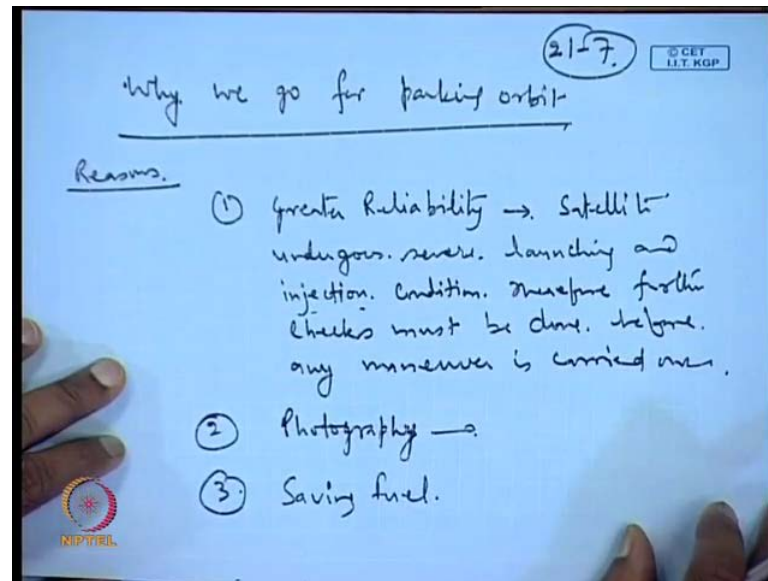 21-7.
© CET
I.I.T. KGP
Why we go for parking orbit
Reasons.
① Greater Reliability → Satellite
undergoes. severe. launching and
injection. Condition. Therefore further
checks must be done. before.
any maneuver is carried over.
② Photography →
③ Saving fuel.
NPTEL